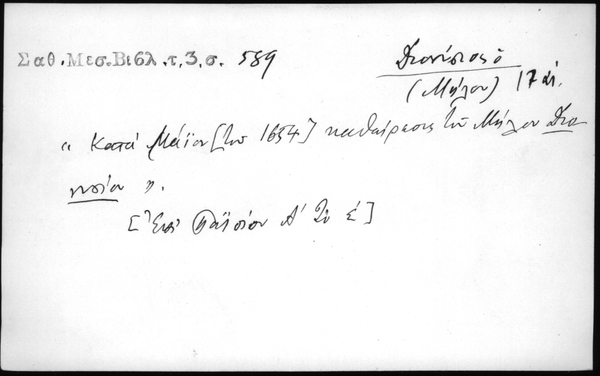 Σαθ.Μεσ.Βιβλ.τ,3,σ. 589
Διονύσιος ὁ
(Μήλου) 17 αἰ.
« Κατά Μάϊον [τοῦ 1654] καθαίρεσις τοῦ Μήλου Διο
νυσίου ».
[Ἐπί Παϊσίου Α' τοῦ